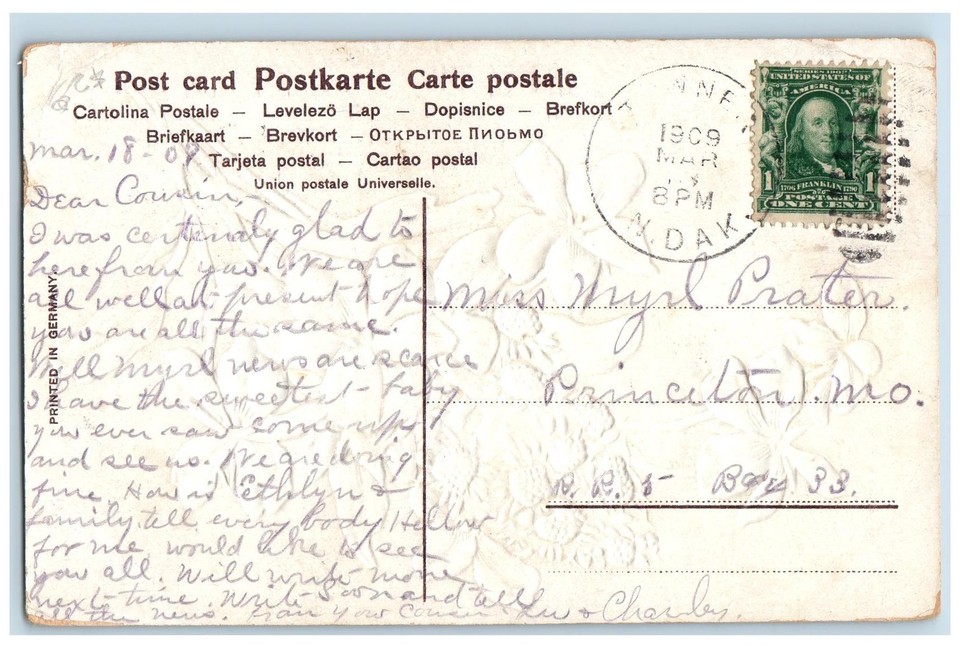 Post card Postkarte Carte postale
Cartolina Postale — Levelező Lap — Dopisnice — Brefkort
Briefkaart — Brevkort — Открытое Письмо
Tarjeta postal — Cartao postal
Union postale Universelle.
PRINTED IN GERMANY
1909
MAR
8 PM
N. DAK
SERIES 1902
UNITED STATES OF
AMERICA
1 1706 FRANKLIN 1790 1
POSTAGE
ONE CENT
Mar. 18-09
Dear Cousin,-
I was certenaly glad to
here from you. We are
all well at present hope
you are all the same.
Well Myrl news are scarce
I have the sweetest baby
you ever saw come up
and see us. We are doing
fine. How is Ethlyn &
family. tell every body Hellow
for me would like to see
you all. Will write more
next time. Write soon and tell
all the news. From your Cousin & Charley.
Miss Myrl Prater.
Princeton. Mo.
R. R. 5 Box 33.